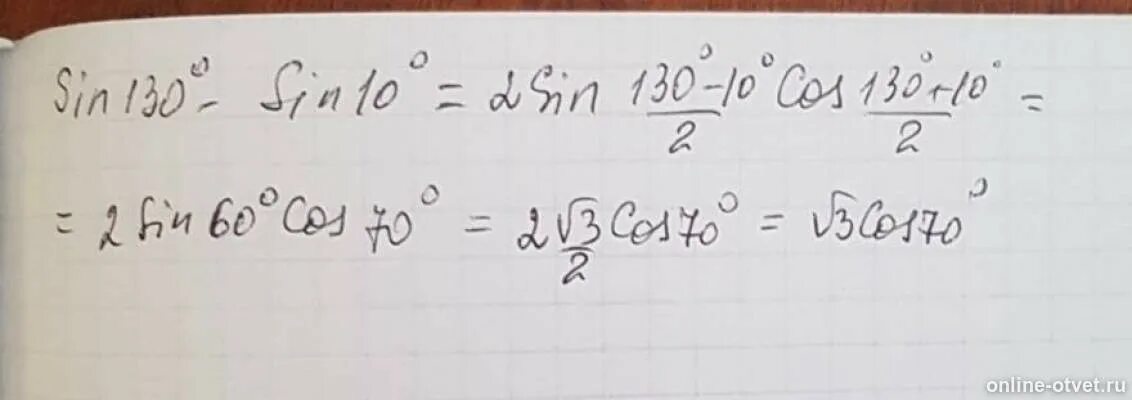 Sin 130° - Sin 10° = 2 Sin (130° - 10°)/2 Cos (130° + 10°)/2 =
= 2 Sin 60° Cos 70° = 2 √3/2 Cos 70° = √3 Cos 70°
online-otvet.ru